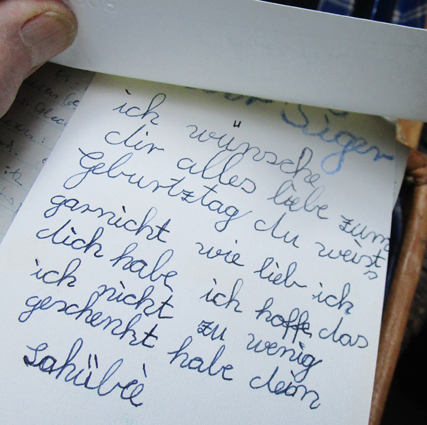 Siger
ich wünsche
dir alles liebe zum
Geburtztag du weist
garnicht wie lieb ich
dich habe ich hoffe das
ich nicht zu wenig
geschenkt habe dein